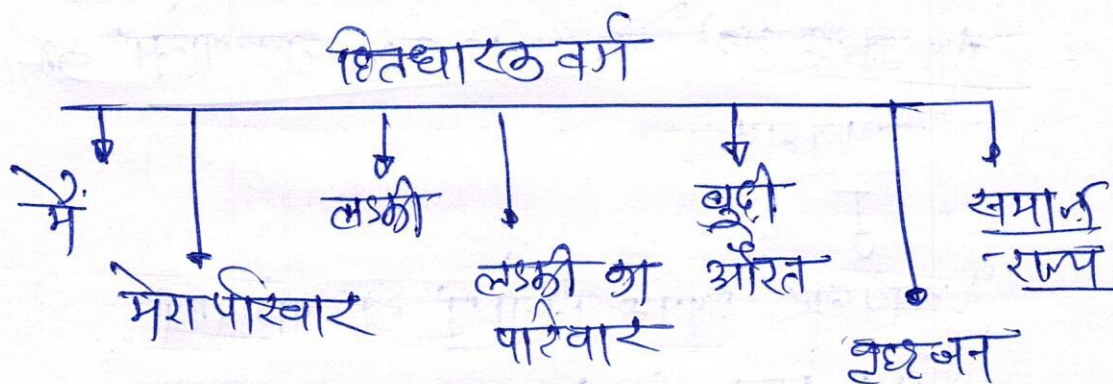 हितधारक वर्ग
मैं
मेरा परिवार
लड़की
लड़की का
परिवार
बुढ़ी
औरत
वृद्धजन
समाज
राज्य